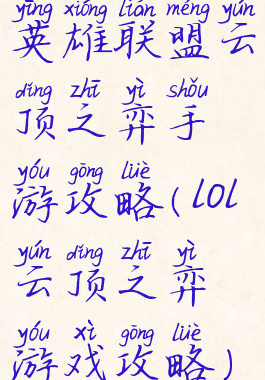 yīng xióng lián méng yún
英雄联盟云
dǐng zhī yì shǒu
顶之弈手
yóu gōng lüè
游攻略(lol
yún dǐng zhī yì
云顶之弈
yóu xì gōng lüè
游戏攻略)